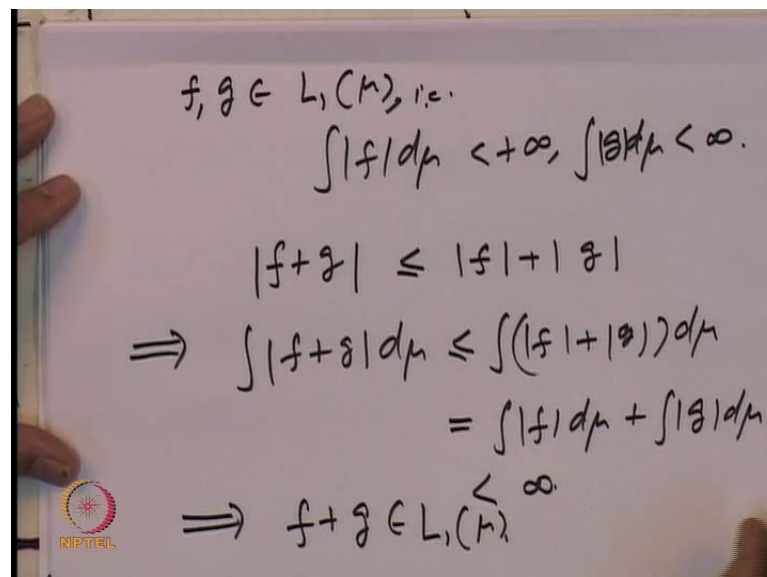 f, g ∈ L₁(μ), i.e.
∫|f|dμ < +∞, ∫|g|dμ < ∞.
|f+g| ≤ |f|+|g|
⟹ ∫|f+g|dμ ≤ ∫(|f|+|g|)dμ
= ∫|f|dμ + ∫|g|dμ
< ∞.
⟹ f+g ∈ L₁(μ)
NPTEL